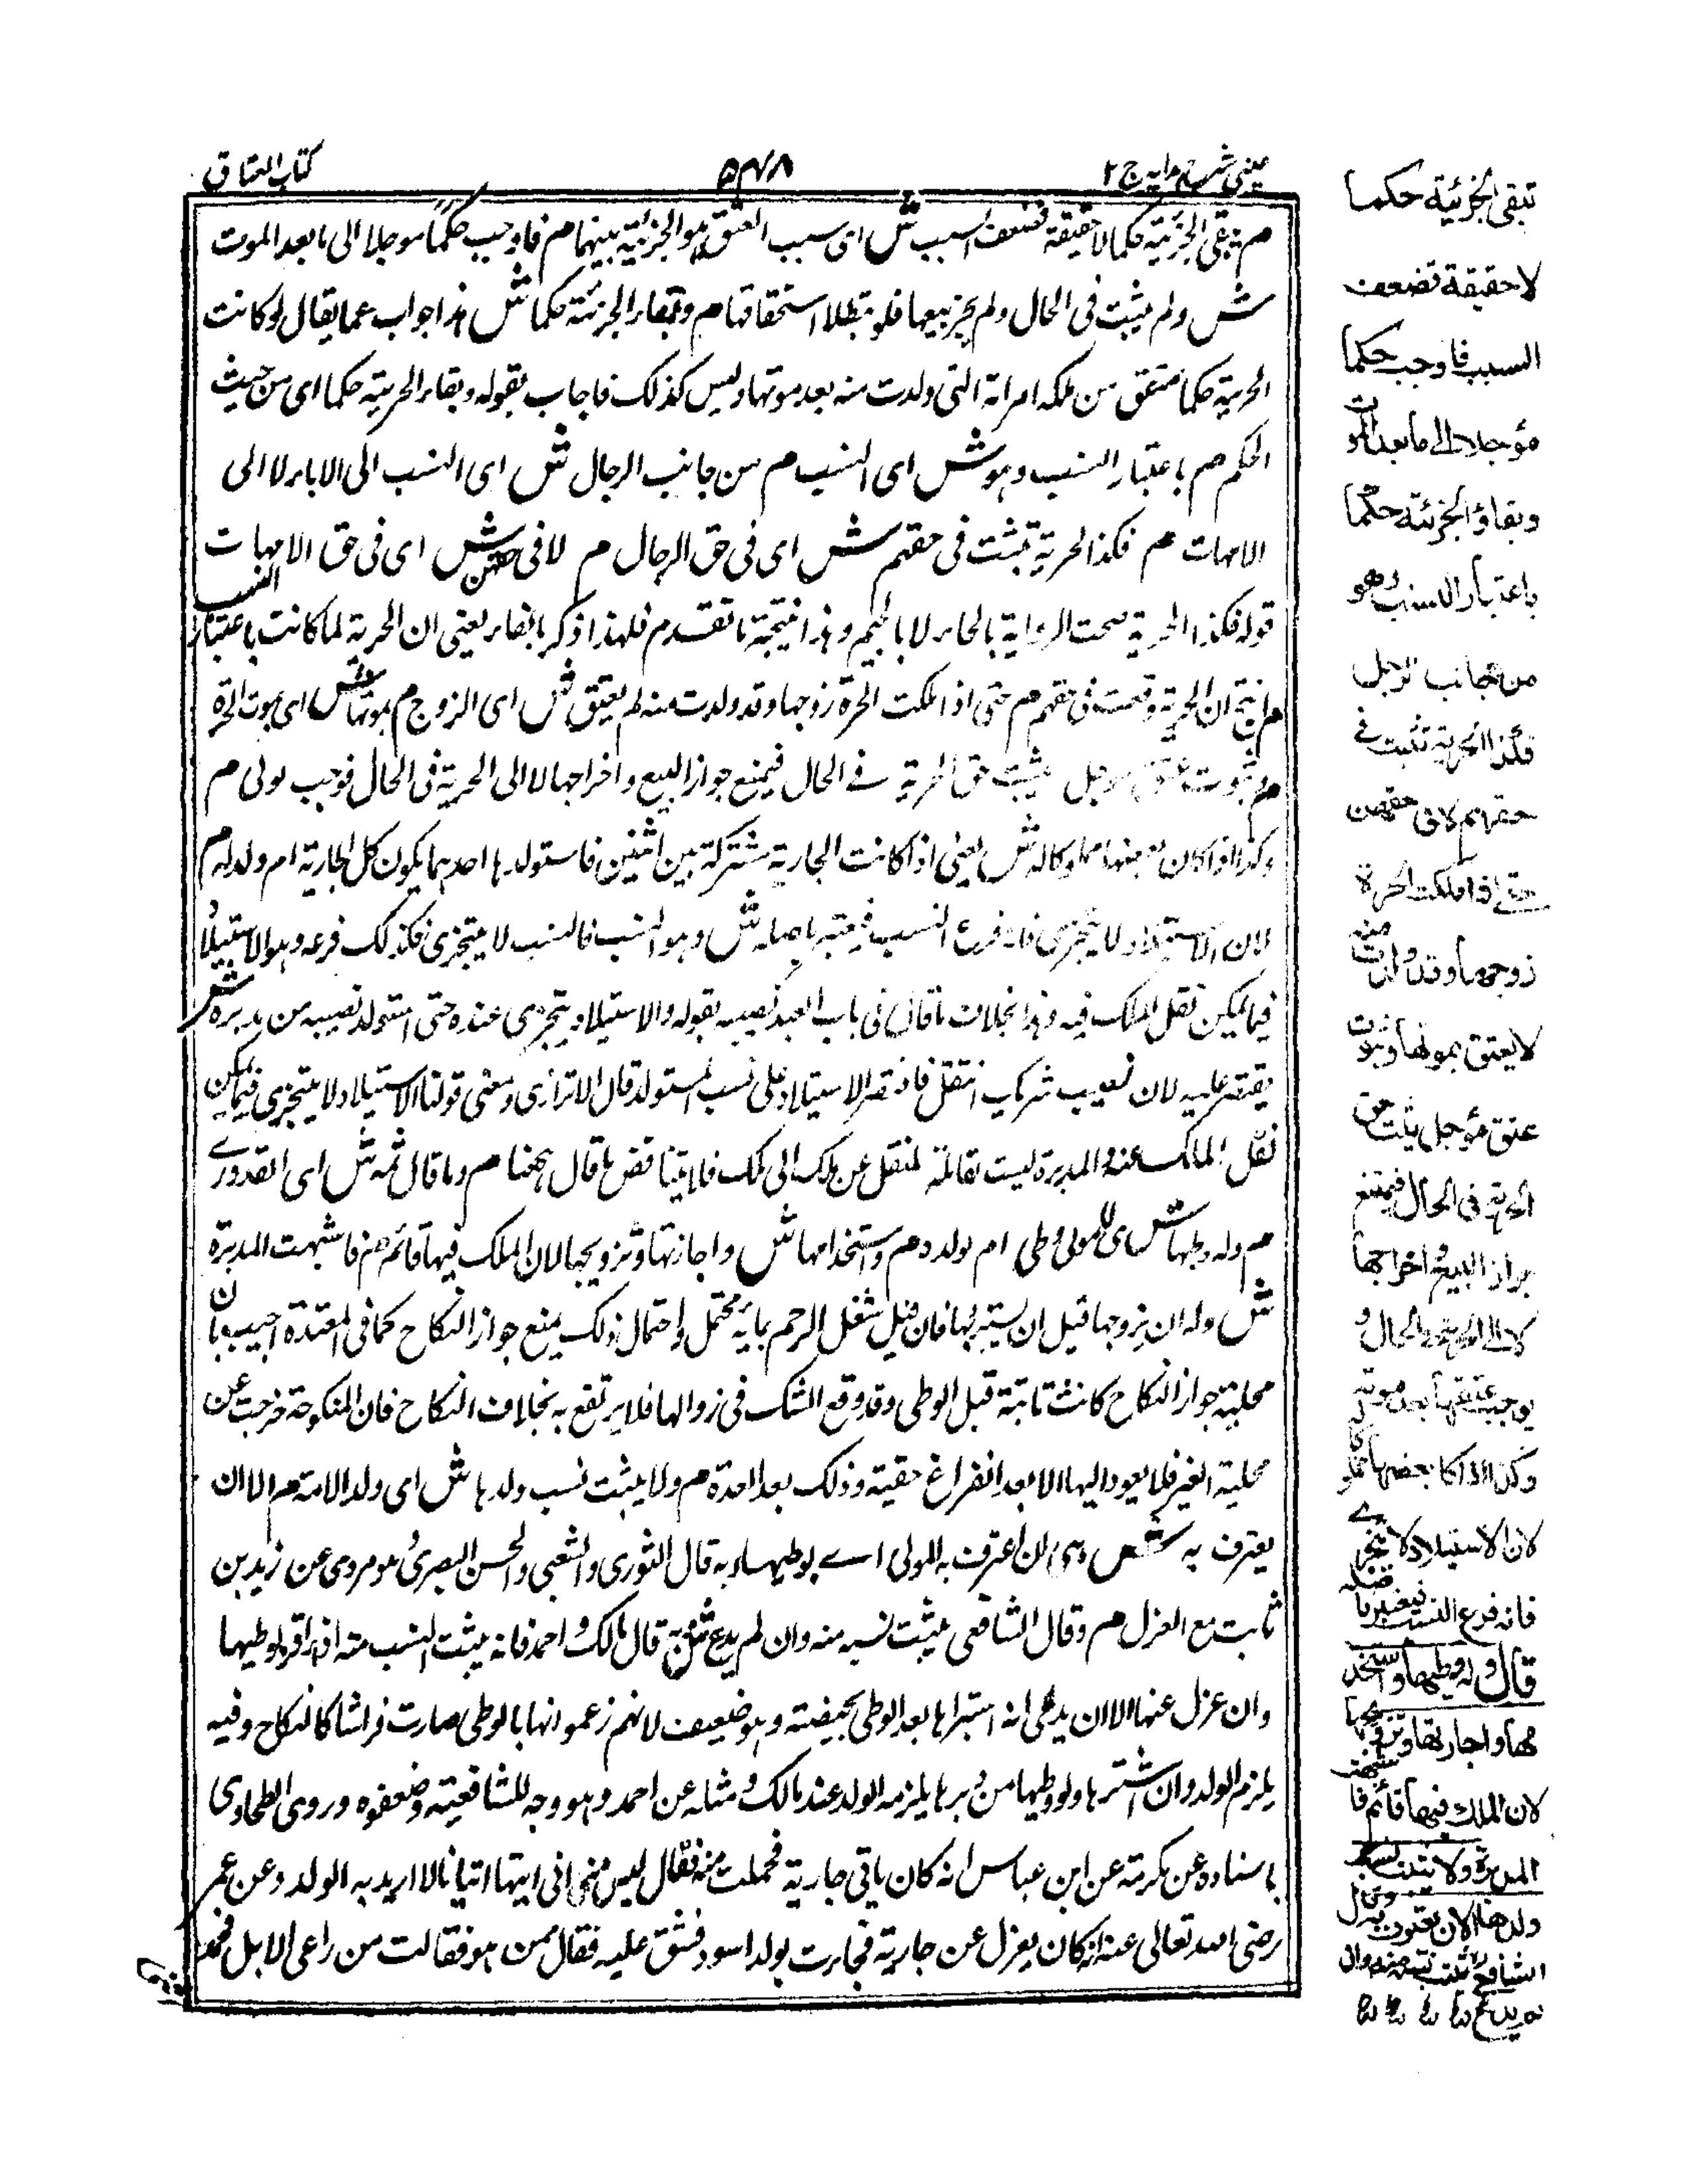 عینی شرح ہدایہ ج ۲
۵۴۸
کتاب العتاق
م تبقی الجزئیۃ حکما لا حقیقۃ فضعف السبب ش ای سبب العتق وہو الجزئیۃ بینہما م فاوجب حکما موجلا الی ما بعد الموت
ش ولم یثبت فی الحال ولم یجز بیعہا فلو بطلا استحقاقہا م وبقاء الجزئیۃ حکما ش ہذا جواب عما یقال لو کانت
الحریۃ حکما تعتق من ملکہ امراتہ التی ولدت منہ بعد موتہا ولیس کذلک فاجاب بقولہ وبقاء الحریۃ حکما ای من حیث
الحکم م باعتبار النسب وہو ش ای النسب م من جانب الرجال ش ای النسب الی الاباء لا الی
الامہات م فکذا الحریۃ تثبت فی حقہم ش ای فی حق الرجال م لا فی حقہن ش ای فی حق الامہات
قولہ فکذا الحریۃ صحت الروایۃ بالحاء لا بالجیم وہذا نتیجۃ ما تقدم فلہذا ذکر بالفاء یعنی ان الحریۃ لما کانت باعتبار النسب
ان الحریۃ وقعت فی حقہم م حتی اذا ملکت الحرۃ زوجہا وقد ولدت منہ لم یعتق ش ای الزوج م بموتہا ش ای بموت الحرۃ
م وثبوت عتق موجل یثبت حق الحریۃ فی الحال فیمنع جواز البیع واخراجہا لا الی الحریۃ فی الحال فوجب مولی م
وکذا اذا کان بعضہا مملوکا لہ ش یعنی اذا کانت الجاریۃ مشترکۃ بین اثنین فاستولدہا احدہما یکون کل الجاریۃ ام ولد لہ م
لان الاستیلاد لا یتجزی فانہ فرع النسب فیعتبر باصلہ ش وہو النسب فالنسب لا یتجزی فکذلک فرعہ وہو الاستیلاد
فیما یمکن نقل الملک فیہ وہذا بخلاف ما قال فی باب العبد نصیبہ بقولہ والاستیلاد یتجزی عندہ حتی استولد نصیبہ من مدبرۃ ش
یقتصر علیہ لان نصیب شریک انتقل فاقتصر الاستیلاد علی نسب المستولد قال الاترازی ومعنی قولنا الاستیلاد لا یتجزی فیما یمکن
نقل الملک عنہ والمدبرۃ لیست بقابلۃ لنقل عن ملک الی ملک فلا یتناقض ما قال ہہنا م وما قال ثمہ ش ای القدوری
م ولہ وطیہا ش ای للمولی وطی ام ولدہ م واستخدامہا ش واجارتہا وتزویجہا لان الملک فیہا قائم م فاشبہت المدبرۃ
ش ولہ ان یزوجہا قبل ان یستبرئہا فان قیل شغل الرحم بمائہ محتمل واحتمال ذلک یمنع جواز النکاح کما فی المعتدۃ اجیب بان
محلیۃ جواز النکاح کانت ثابتۃ قبل الوطی وقد وقع الشک فی زوالہا فلا یرتفع بہ بخلاف النکاح فان المنکوحۃ خرجت عن
محلیۃ الغیر فلا یعود الیہا الا بعد الفراغ حقیقۃ وذلک بعد العدۃ م ولا یثبت نسب ولدہا ش ای ولد الامۃ م الا ان
یعترف بہ ش ای ان اعترف بہ المولی اے بوطیہا وبہ قال الثوری والشعبی والحسن البصری وہو مروی عن زید بن
ثابت مع العزل م وقال الشافعی یثبت نسبہ منہ وان لم یدع ش وبہ قال مالک واحمد فانہ یثبت النسب منہ اذا اقر بوطیہا
وان عزل عنہا الا ان یدعی انہ استبراہا بعد الوطی بحیضۃ وہو ضعیف لانہم زعموا انہا بالوطی صارت فراشا کالنکاح وفیہ
یلزم الولد وان استبرہا ولو وطیہا من دبرہا یلزمہ الولد عند مالک ومثلہ عن احمد وہو وجہ للشافعیۃ وضعفوہ وروی الطحاوی
باسنادہ عن عکرمۃ عن ابن عباس انہ کان یاتی جاریۃ فحملت منہ فقال لیس منی انی اتیتہا اتیانا لا ارید بہ الولد وعن عمر
رضی اللہ تعالی عنہ انہ کان یعزل عن جاریۃ فجاءت بولد اسود فشق علیہ فقال ممن ہو فقالت من راعی الابل فحمد
تبقی الجزئیة حکما
لا حقیقة فضعف
السبب فاوجب حکما
مؤجلا الی ما بعد الموت
وبقاؤ الجزئیة حکما
باعتبار النسب وهو
من جانب الرجل
فکذا الحریة تثبت فی
حقهم لا فی حقهن
حتی اذا ملکت الحرة
زوجها وقد ولدت منه
لا یعتق بموتها وثبوت
عتق مؤجل یثبت حق
الحریة فی الحال فیمتنع
جواز البیع واخراجها
لا الی الحریة فی الحال و
یوجب عتقها بعد موته
وکذا اذا کان بعضها مملوکا
لان الاستیلاد لا یتجزی
فانه فرع النسب فیعتبر باصله
قال وله وطیها واستخد
امها واجارتها وتزویجها
لان الملک فیها قائم فاشبهت
المدبرة ولا یثبت نسب
ولدها الا ان یعترف به وقال
الشافعی یثبت نسبه منه وان
لم یدع